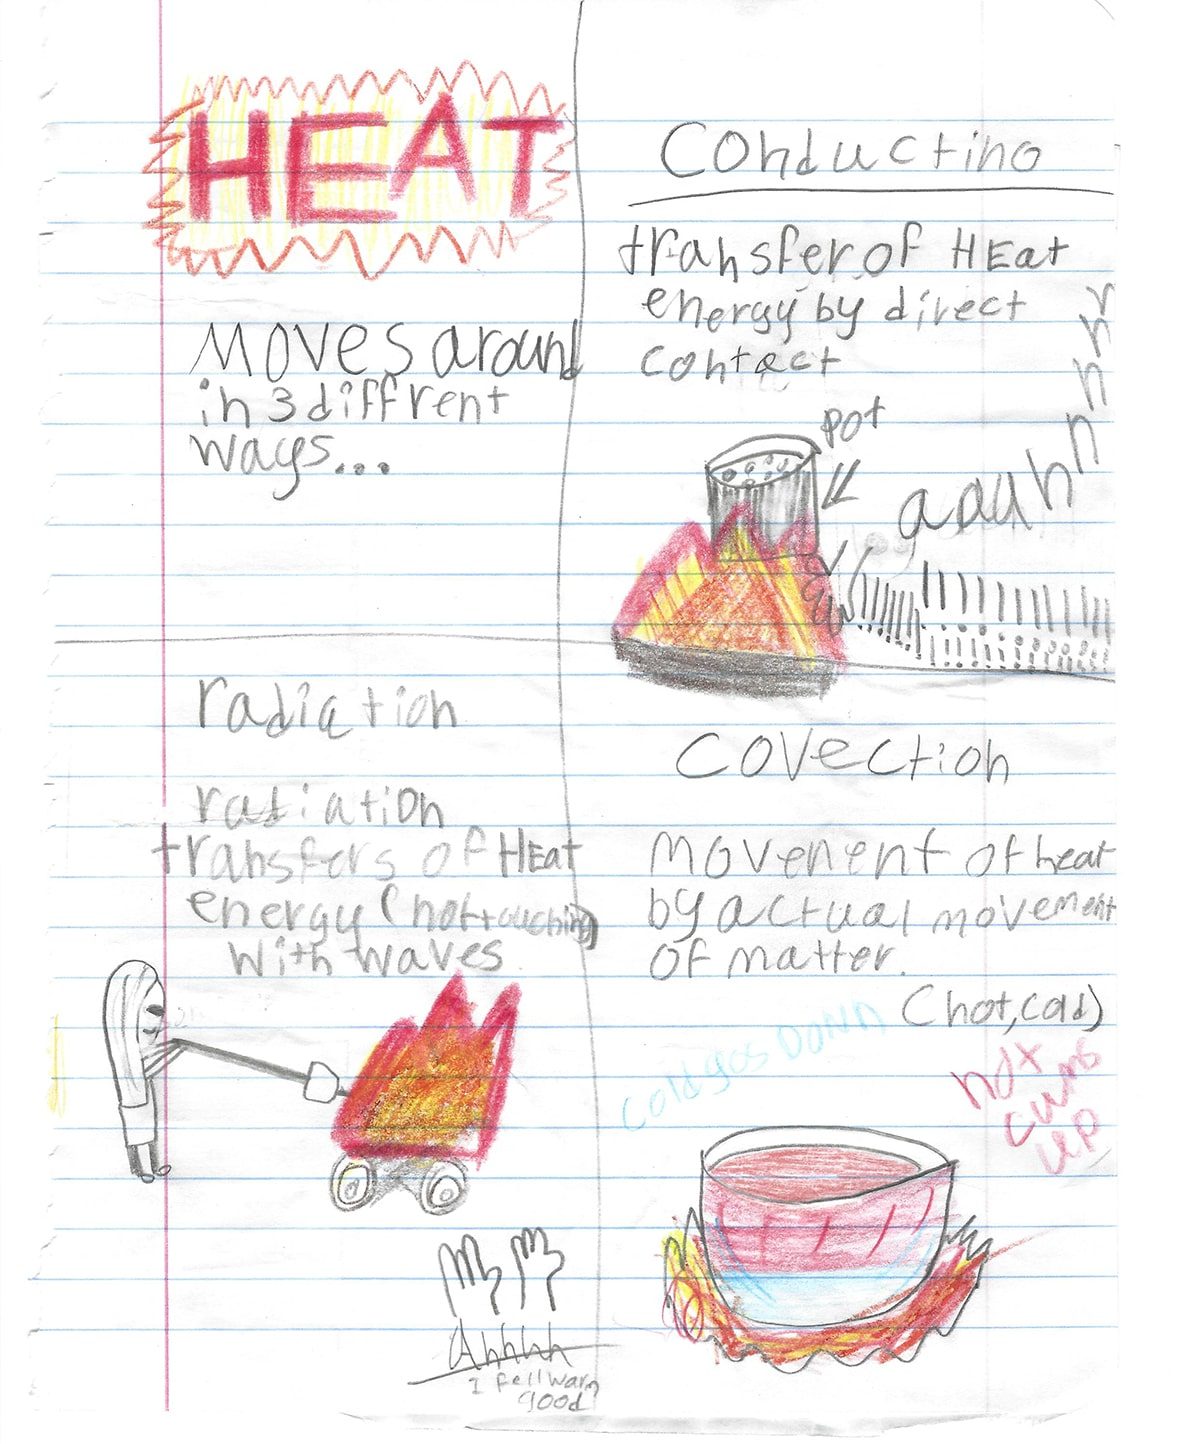 HEAT
Moves around
in 3 diffrent
ways...
Conductino
transfer of HEat
energy by direct
contact
pot
aaahhhhh
radiation
radiation
transfers of HEat
energy (not touching)
with waves
Ahhhhh
I fell warm
good
Covection
Movenent of heat
by actual movement
of matter.
(hot, cold)
cold gos Down
hot
cums
up